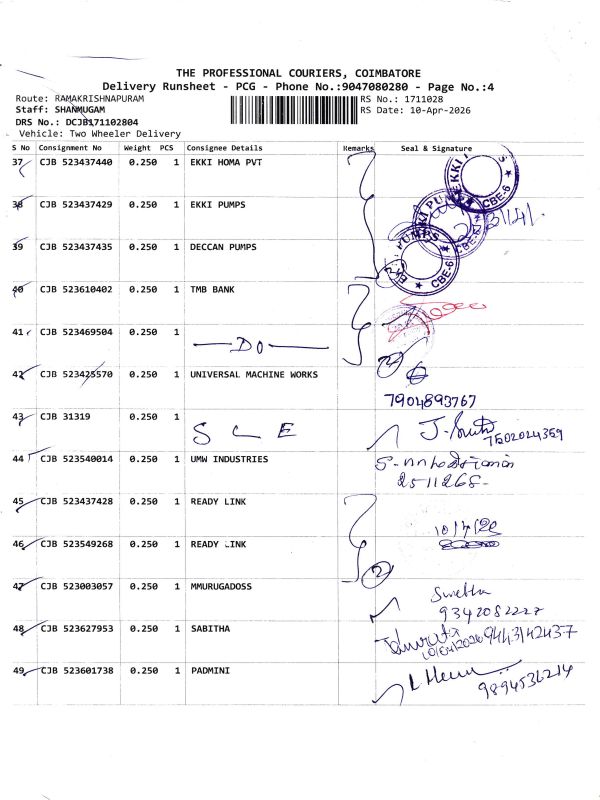 THE PROFESSIONAL COURIERS, COIMBATORE
Delivery Runsheet - PCG - Phone No.:9047080280 - Page No.:4
Route: RAMAKRISHNAPURAM
Staff: SHANMUGAM
DRS No.: DCJB171102804
Vehicle: Two Wheeler Delivery
RS No.: 1711028
RS Date: 10-Apr-2026
S No Consignment No Weight PCS Consignee Details Remarks Seal & Signature
37 CJB 523437440 0.250 1 EKKI HOMA PVT
38 CJB 523437429 0.250 1 EKKI PUMPS
39 CJB 523437435 0.250 1 DECCAN PUMPS
EKKI PUMPS
CBE-6
40 CJB 523610402 0.250 1 TMB BANK
41 CJB 523469504 0.250 1 DO
2
42 CJB 523425570 0.250 1 UNIVERSAL MACHINE WORKS
7904893767
43 CJB 31319 0.250 1 S L E
7502024359
44 CJB 523540014 0.250 1 UMW INDUSTRIES
2511268-
45 CJB 523437428 0.250 1 READY LINK
46 CJB 523549268 0.250 1 READY LINK
2
47 CJB 523003057 0.250 1 MMURUGADOSS
Swetha
9342082227
48 CJB 523627953 0.250 1 SABITHA
10/04/2026 9443142437
49 CJB 523601738 0.250 1 PADMINI
9894536214